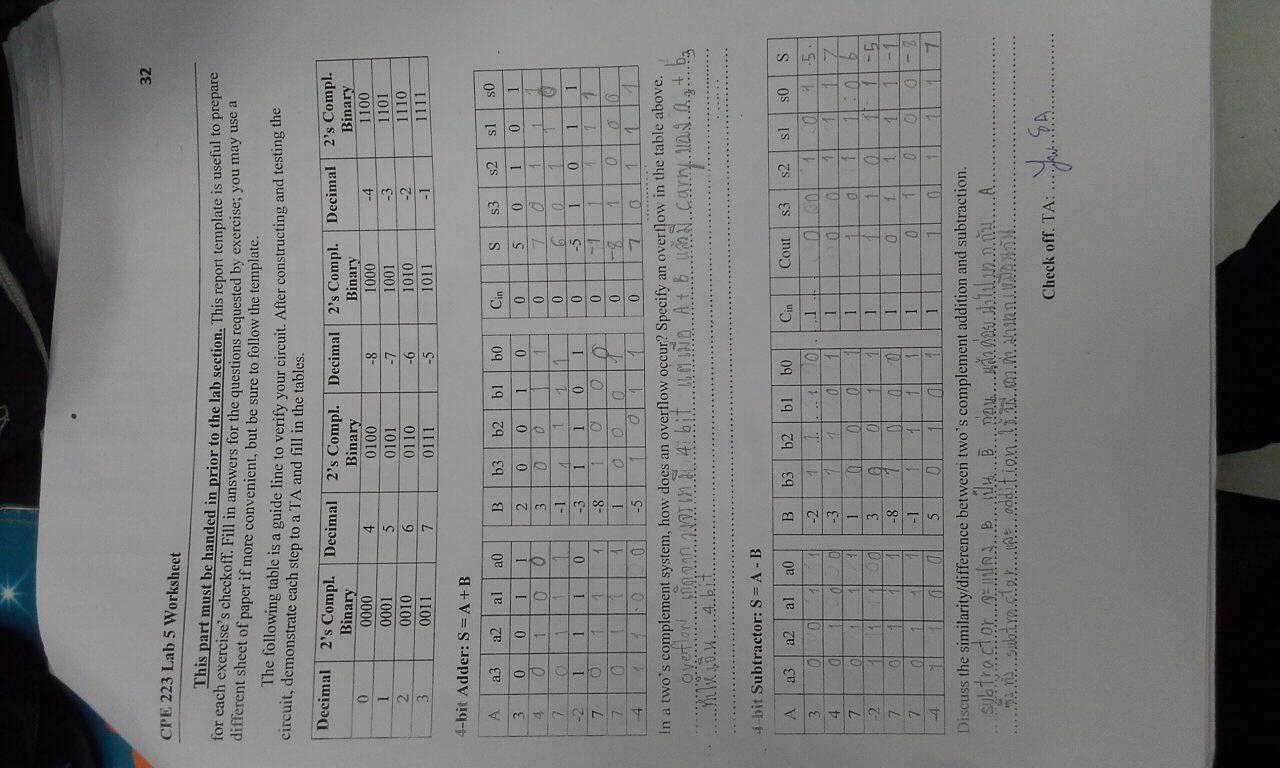 32
CPE 223 Lab 5 Worksheet
This part must be handed in prior to the lab section. This report template is useful to prepare
for each exercise's checkoff. Fill in answers for the questions requested by exercise; you may use a
different sheet of paper if more convenient, but be sure to follow the template.
The following table is a guide line to verify your circuit. After constructing and testing the
circuit, demonstrate each step to a TA and fill in the tables.
Decimal 2's Compl. Binary Decimal 2's Compl. Binary Decimal 2's Compl. Binary Decimal 2's Compl. Binary
0 0000 4 0100 -8 1000 -4 1100
1 0001 5 0101 -7 1001 -3 1101
2 0010 6 0110 -6 1010 -2 1110
3 0011 7 0111 -5 1011 -1 1111
4-bit Adder: S = A + B
A a3 a2 a1 a0 B b3 b2 b1 b0 Cin S s3 s2 s1 s0
3 0 0 1 1 2 0 0 1 0 0 5 0 1 0 1
4 0 1 0 0 3 0 0 1 1 0 7 0 1 1 1
7 0 1 1 1 -1 1 1 1 1 0 6 0 1 1 0
-2 1 1 1 0 -3 1 1 0 1 0 -5 1 0 1 1
7 0 1 1 1 -8 1 0 0 0 0 -1 1 1 1 1
7 0 1 1 1 1 0 0 0 1 0 -8 1 0 0 0
-4 1 1 0 0 -5 1 0 1 1 0 7 0 1 1 1
In a two's complement system, how does an overflow occur? Specify an overflow in the table above.
4 bit A + B carry a3 + b3
4 bit
4-bit Subtractor: S = A - B
A a3 a2 a1 a0 B b3 b2 b1 b0 Cin Cout s3 s2 s1 s0 S
3 0 0 1 1 -2 1 1 1 0 1 0 0 1 0 1 5
4 0 1 0 0 -3 1 1 0 1 1 0 0 1 1 1 7
7 0 1 1 1 1 0 0 0 1 1 1 0 1 1 0 6
-2 1 1 1 0 3 0 0 1 1 1 1 1 0 1 1 -5
7 0 1 1 1 -8 1 0 0 0 1 0 1 1 1 1 -1
7 0 1 1 1 -1 1 1 1 1 1 0 1 0 0 0 -8
-4 1 1 0 0 5 0 1 0 1 1 1 0 1 1 1 7
Discuss the similarity/difference between two's complement addition and subtraction.
subtractor จะแปลง B เป็น B̄ ก่อน แล้วค่อย กับ A
subtractor และ addition
Check off. TA: